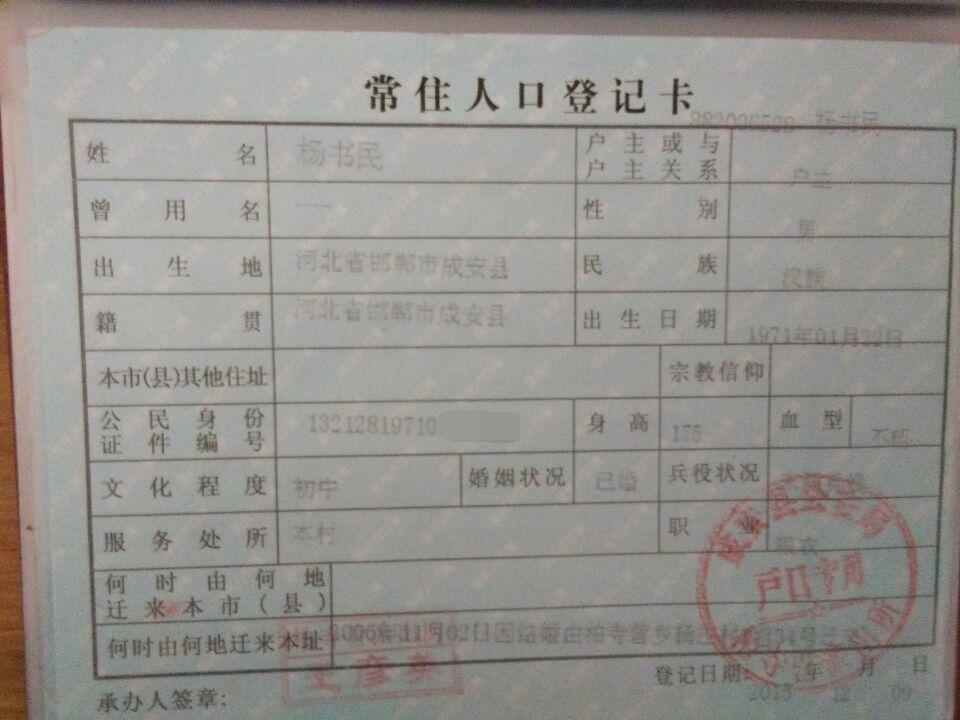 常住人口登记卡
882006528 杨书民
姓名 杨书民 户主或与户主关系 户主
曾用名 —— 性别 男
出生地 河北省邯郸市成安县 民族 汉族
籍贯 河北省邯郸市成安县 出生日期 1971年01月22日
本市(县)其他住址 宗教信仰
公民身份证件编号 13212819710 身高 175 血型 不明
文化程度 初中 婚姻状况 已婚 兵役状况
服务处所 本村 职业
何时由何地迁来本市(县)
何时由何地迁来本址 2006年11月02日因结婚由柏寺营乡
户口专用
登记日期: 年 月 日
2013 12 09
承办人签章: